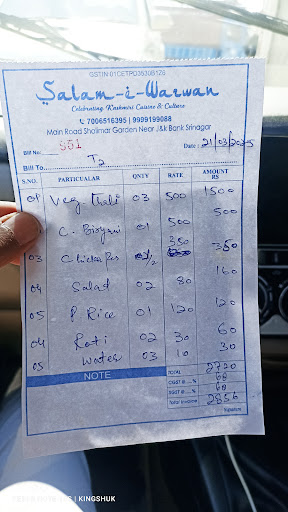 GSTIN 01CETPD3530B1Z6
Salam-e-Warwan
Celebrating Kashmiri Cuisine & Culture
7006516395 | 9999199088
Main Road Shalimar Garden Near J&K Bank Srinagar
Bill No: 551 Date: 21/03/2025
Bill To: T2
S.NO. PARTICULAR QNTY RATE AMOUNT RS
01 Veg Thali 03 500 1500
C. Biryani 01 500 500
03 Chicken 1/2 350 350
04 Salad 02 80 160
05 P. Rice 01 120 120
04 Roti 02 30 60
05 water 03 10 30
NOTE
TOTAL 2720
CGST @.....% 68
SGST @.....% 68
Total Invoice 2856
KINGSHUK